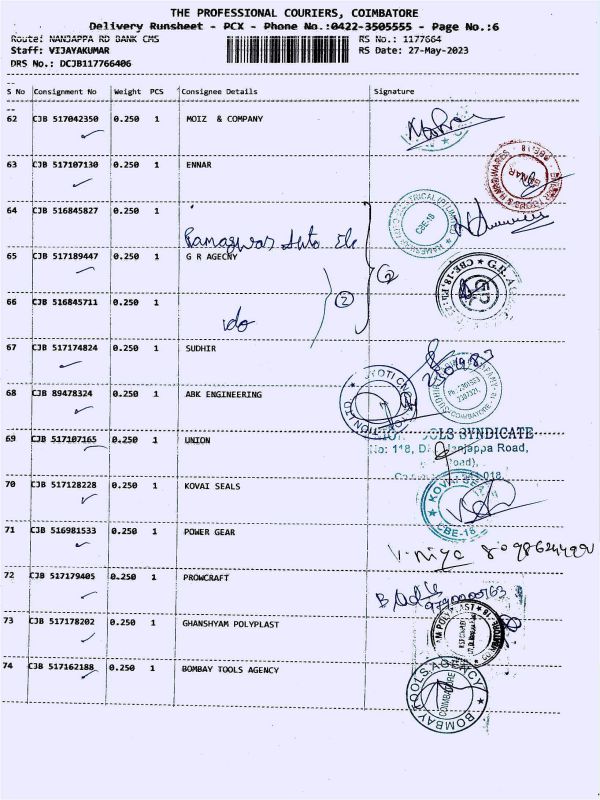 THE PROFESSIONAL COURIERS, COIMBATORE
Delivery Runsheet - PCX - Phone No.:0422-3505555 - Page No.:6
Route: NANJAPPA RD BANK CMS RS No.: 1177664
Staff: VIJAYAKUMAR RS Date: 27-May-2023
DRS No.: DCJB117766406
S No Consignment No Weight PCS Consignee Details Signature
62 CJB 517042350 0.250 1 MOIZ & COMPANY
63 CJB 517107130 0.250 1 ENNAR
64 CJB 516845827 0.250 1
CBE-18
65 CJB 517189447 0.250 1 G R AGECNY
66 CJB 516845711 0.250 1
2
67 CJB 517174824 0.250 1 SUDHIR
68 CJB 89478324 0.250 1 ABK ENGINEERING
COIMBATORE
69 CJB 517107165 0.250 1 UNION
OOLS SYNDICATE
No: 118, Dr. Nanjappa Road,
70 CJB 517128228 0.250 1 KOVAI SEALS
KOVAI SE
CBE-18
71 CJB 516981533 0.250 1 POWER GEAR
72 CJB 517179405 0.250 1 PROWCRAFT
73 CJB 517178202 0.250 1 GHANSHYAM POLYPLAST
74 CJB 517162188 0.250 1 BOMBAY TOOLS AGENCY
BOMBAY TOOLS AGENCY
COIMBATORE